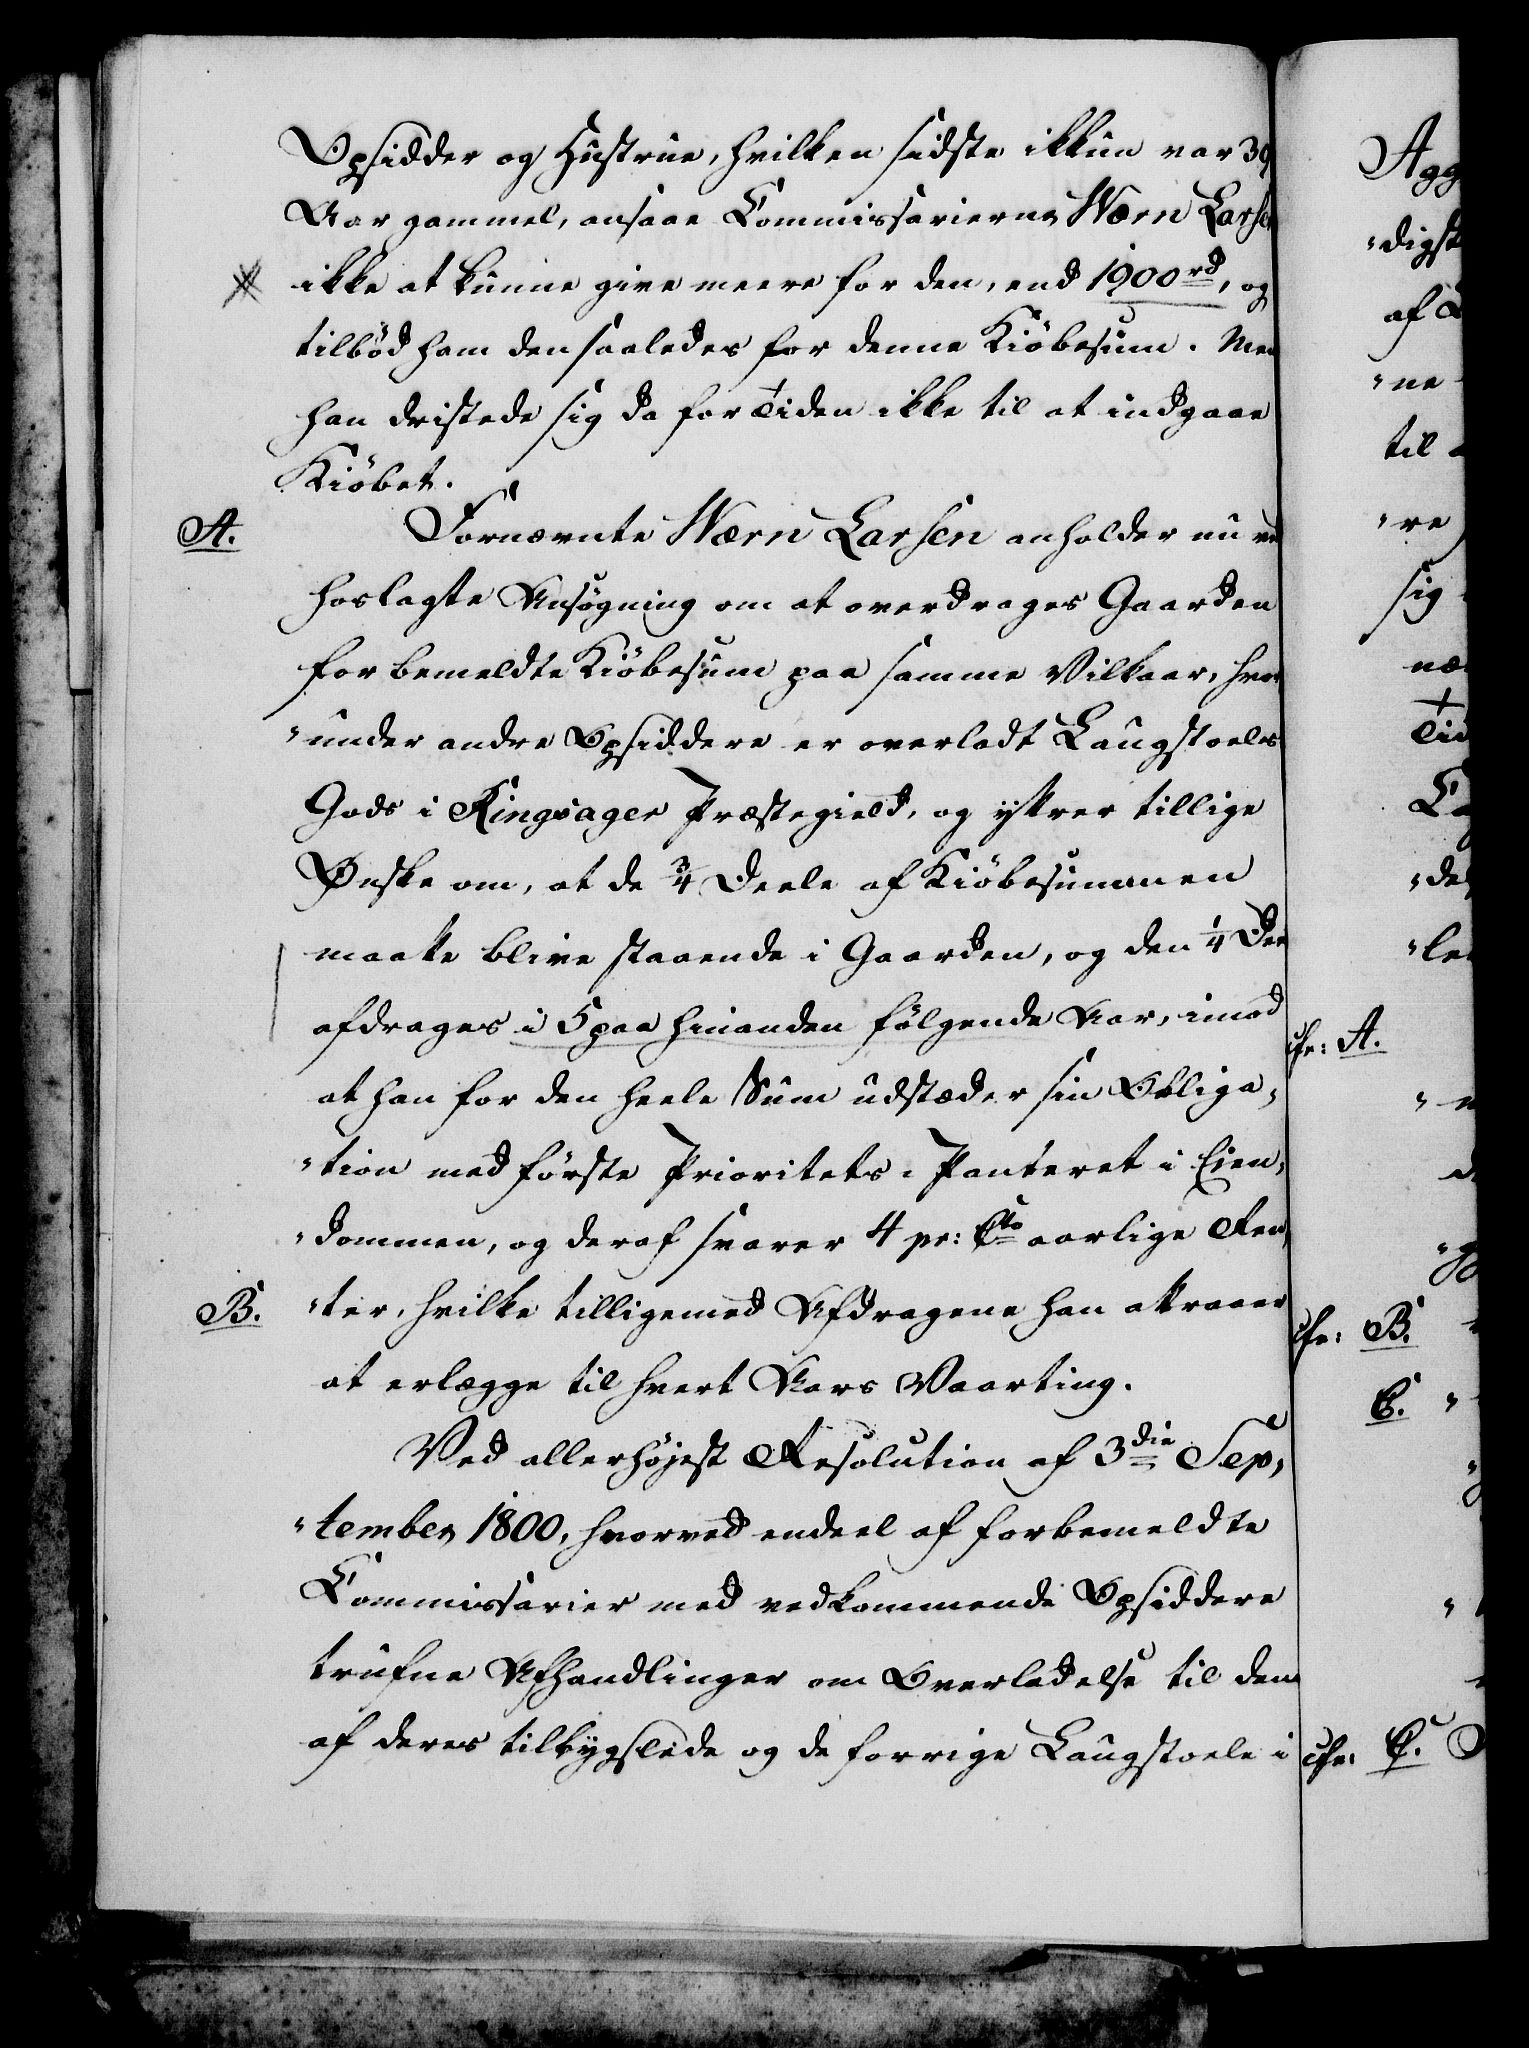 Opsidder og Hustrue, hvilken sidste ikkun var 39
Aar gammel, ansaae Commissarierne Wærn Larsen
ikke at kunne give meere for den, end 1900 rd, og
tilböd ham den saaledes for denne Kiöbesum. Men
han dristede sig da for Tiden ikke til at indgaae
Kiöbet.
A. Fornævnte Wærn Larsen anholder nu ved
hoslagte Ansögning om at overdrages Gaarden
for bemeldte Kiöbesum paa samme Vilkaar, hvor
"under andre Opsiddere er overladt Laugstoels
Gods i Ringsager Præstegield, og yttrer tillige
Ønske om, at de 3/4 Deele af Kiöbesummen
maatte blive staaende i Gaarden, og den 1/4 Deel
afdrages i 5 paa hinanden fölgende Aar, imod
at han for den heele Sum udstæder sin Obliga,
"tion med förste Prioritets Panteret i Eien,
"dommen, og deraf svarer 4 pr: Cto aarlige Ren,
B. "ter, hvilke tilligemed Afdragene han attraaer
at erlægge til hvert Aars Vaarting.
Ved allerhöjest Resolution af 3die Sep,
"tember 1800, hvorved endeel af forbemeldte
Commissarier med vedkommende Opsiddere
trufne Afhandlinger om Overladelse til dem
af deres tilbygslede og de forrige Laugstoele i
Agg
"digst
af
"ne
til
"re
sig
Tid
"de
"le
cfr: A.
cfr: B.
C.
cfr: C.